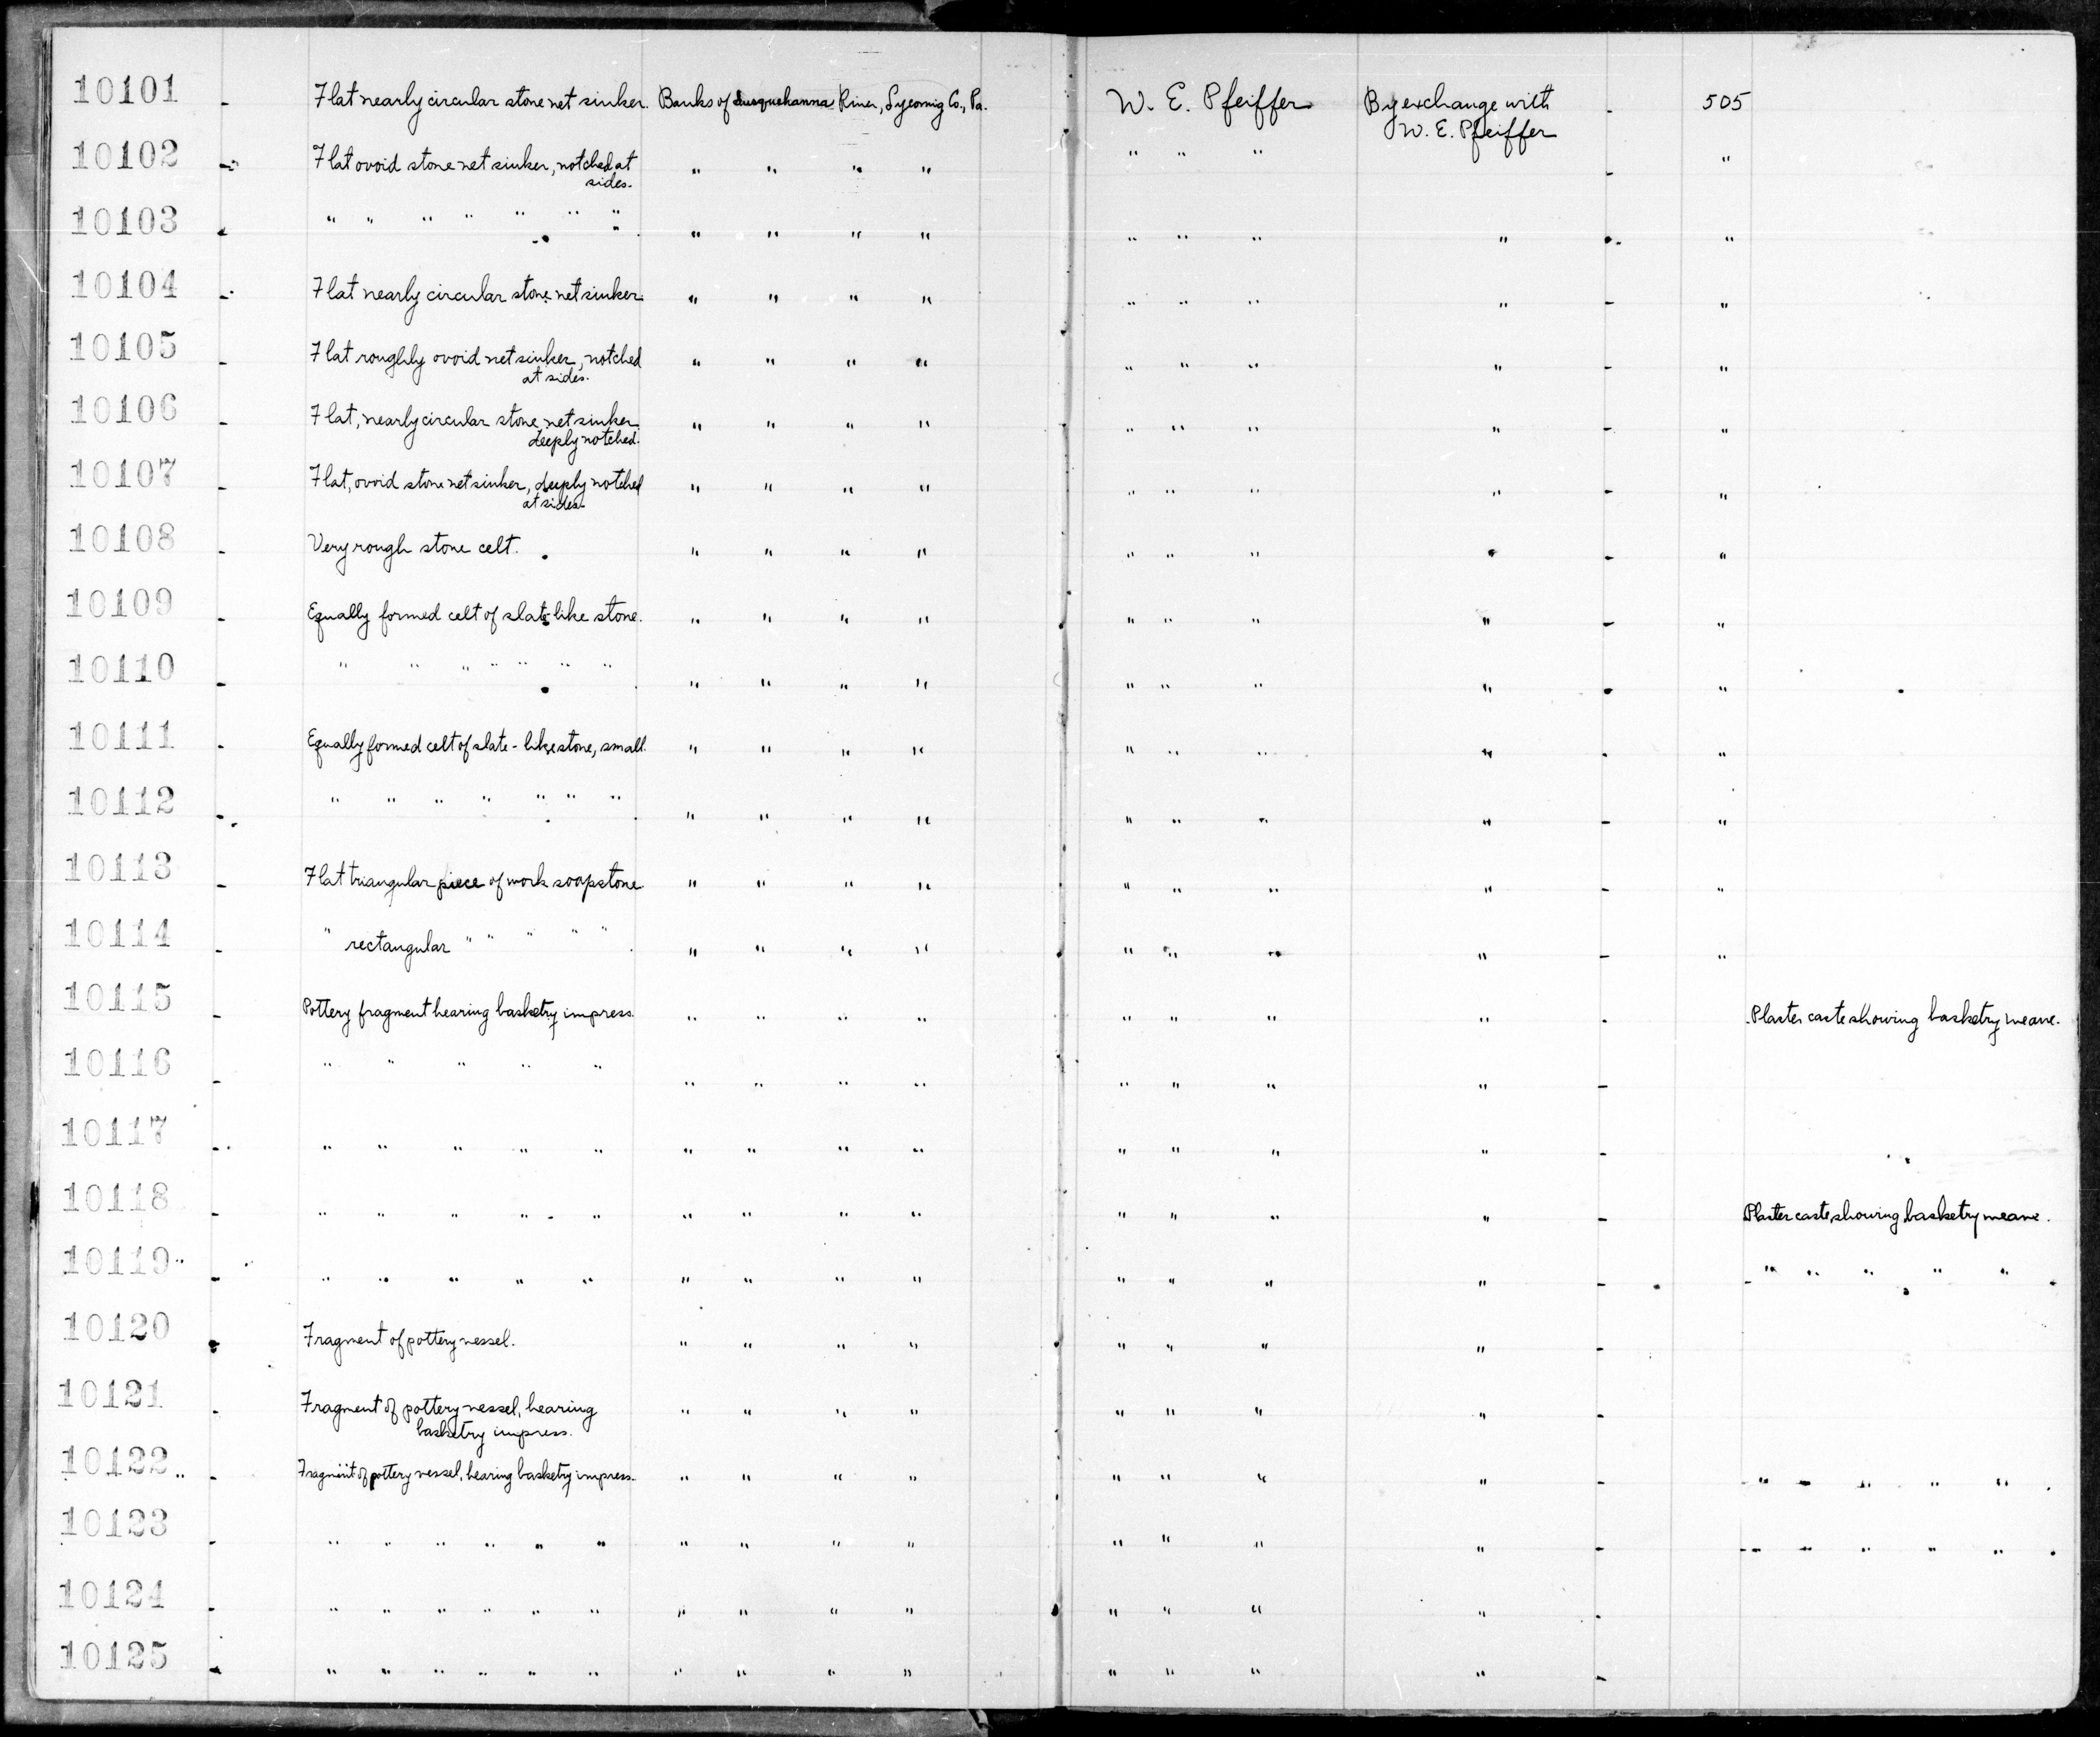 10101 - Flat nearly circular stone net sinker. Banks of Susquehanna River, Lycomig Co., Pa. W. E. Pfeiffer By exchange with - 505
W. E. Pfeiffer
10102 - Flat ovoid stone net sinker, notched at " " " " " " " - "
sides.
10103 - " " " " " " " " " " " " " " " " - "
10104 - Flat nearly circular stone net sinker. " " " " " " " " - "
10105 - Flat roughly ovoid net sinker, notched " " " " " " " " - "
at sides.
10106 - Flat, nearly circular stone net sinker " " " " " " " " - "
deeply notched.
10107 - Flat, ovoid stone net sinker, deeply notched " " " " " " " " - "
at sides.
10108 - Very rough stone celt. " " " " " " " " - "
10109 - Equally formed celt of slate-like stone. " " " " " " " " - "
10110 - " " " " " " " " " " " " " " " - "
10111 - Equally formed celt of slate-like stone, small. " " " " " " " " - "
10112 - " " " " " " " " " " " " " " " - "
10113 - Flat triangular piece of work soapstone. " " " " " " " " - "
10114 - " rectangular " " " " " " " " " " " " " - "
10115 - Pottery fragment bearing basketry impress. " " " " " " " " - Plaster caste showing basketry weave.
10116 - " " " " " " " " " " " " " -
10117 - " " " " " " " " " " " " " -
10118 - " " " " " " " " " " " " " - Plaster caste, showing basketry weave.
10119 - " " " " " " " " " " " " " - " " " " "
10120 - Fragment of pottery vessel. " " " " " " " " -
10121 - Fragment of pottery vessel, bearing " " " " " " " " -
basketry impress.
10122 - Fragment of pottery vessel, bearing basketry impress. " " " " " " " " - " " " " "
10123 - " " " " " " " " " " " " " " - " " " " "
10124 - " " " " " " " " " " " " " " -
10125 - " " " " " " " " " " " " " " -